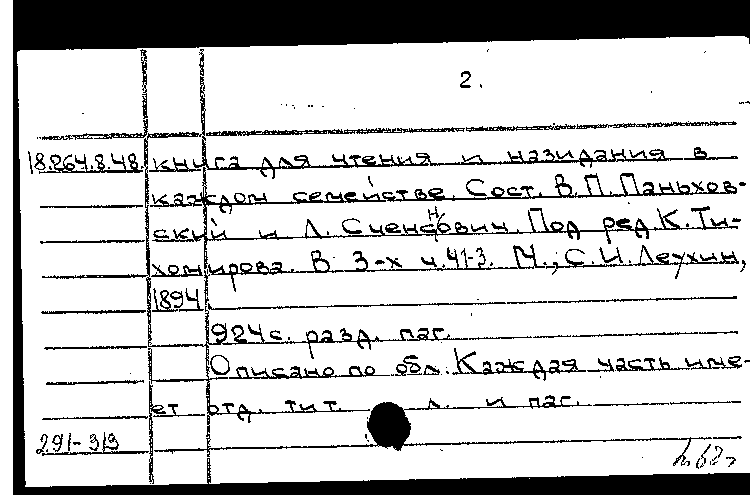 2.
18.264.8.48. книга для чтения и назидания в
каждом семействе. Сост. В.П. Паньхов-
ский и Л. Сченснович. Под ред. К. Ти-
хомирова. В 3-х ч. Ч1-3. М., С.И. Леухин,
1894
924 с. разд. паг.
Описано по обл. Каждая часть име-
ет отд. тит. л. и паг.
291-313